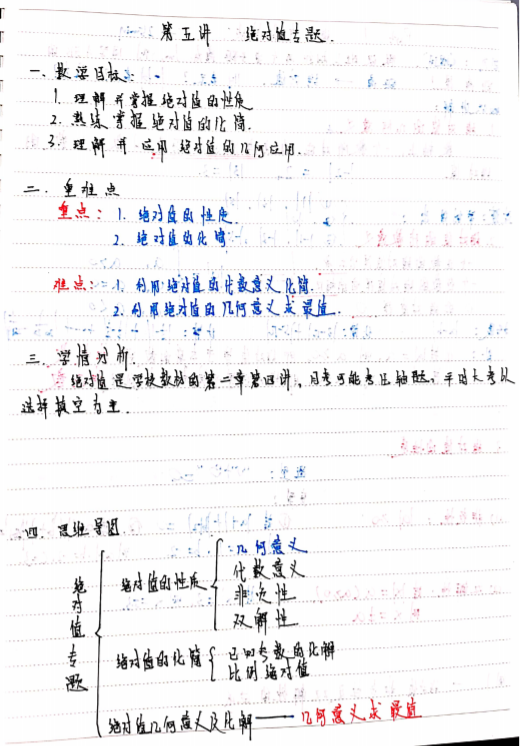 第五讲 绝对值专题.
一、教学目标:
1. 理解并掌握绝对值的性质
2. 熟练掌握绝对值的化简.
3. 理解并运用绝对值的几何应用.
二. 重难点
重点: 1. 绝对值的性质
2. 绝对值的化简
难点: 1. 利用绝对值的代数意义化简.
2. 利用绝对值的几何意义求最值.
三. 学情分析.
绝对值是学校教材的第一章第四讲, 月考可能考压轴题, 平时大考以
选择填空为主.
四. 思维导图
绝对值专题
绝对值的性质
几何意义
代数意义
非负性
双解性
绝对值的化简
已知参数的化解
比例绝对值
绝对值几何意义及化解 几何意义求最值